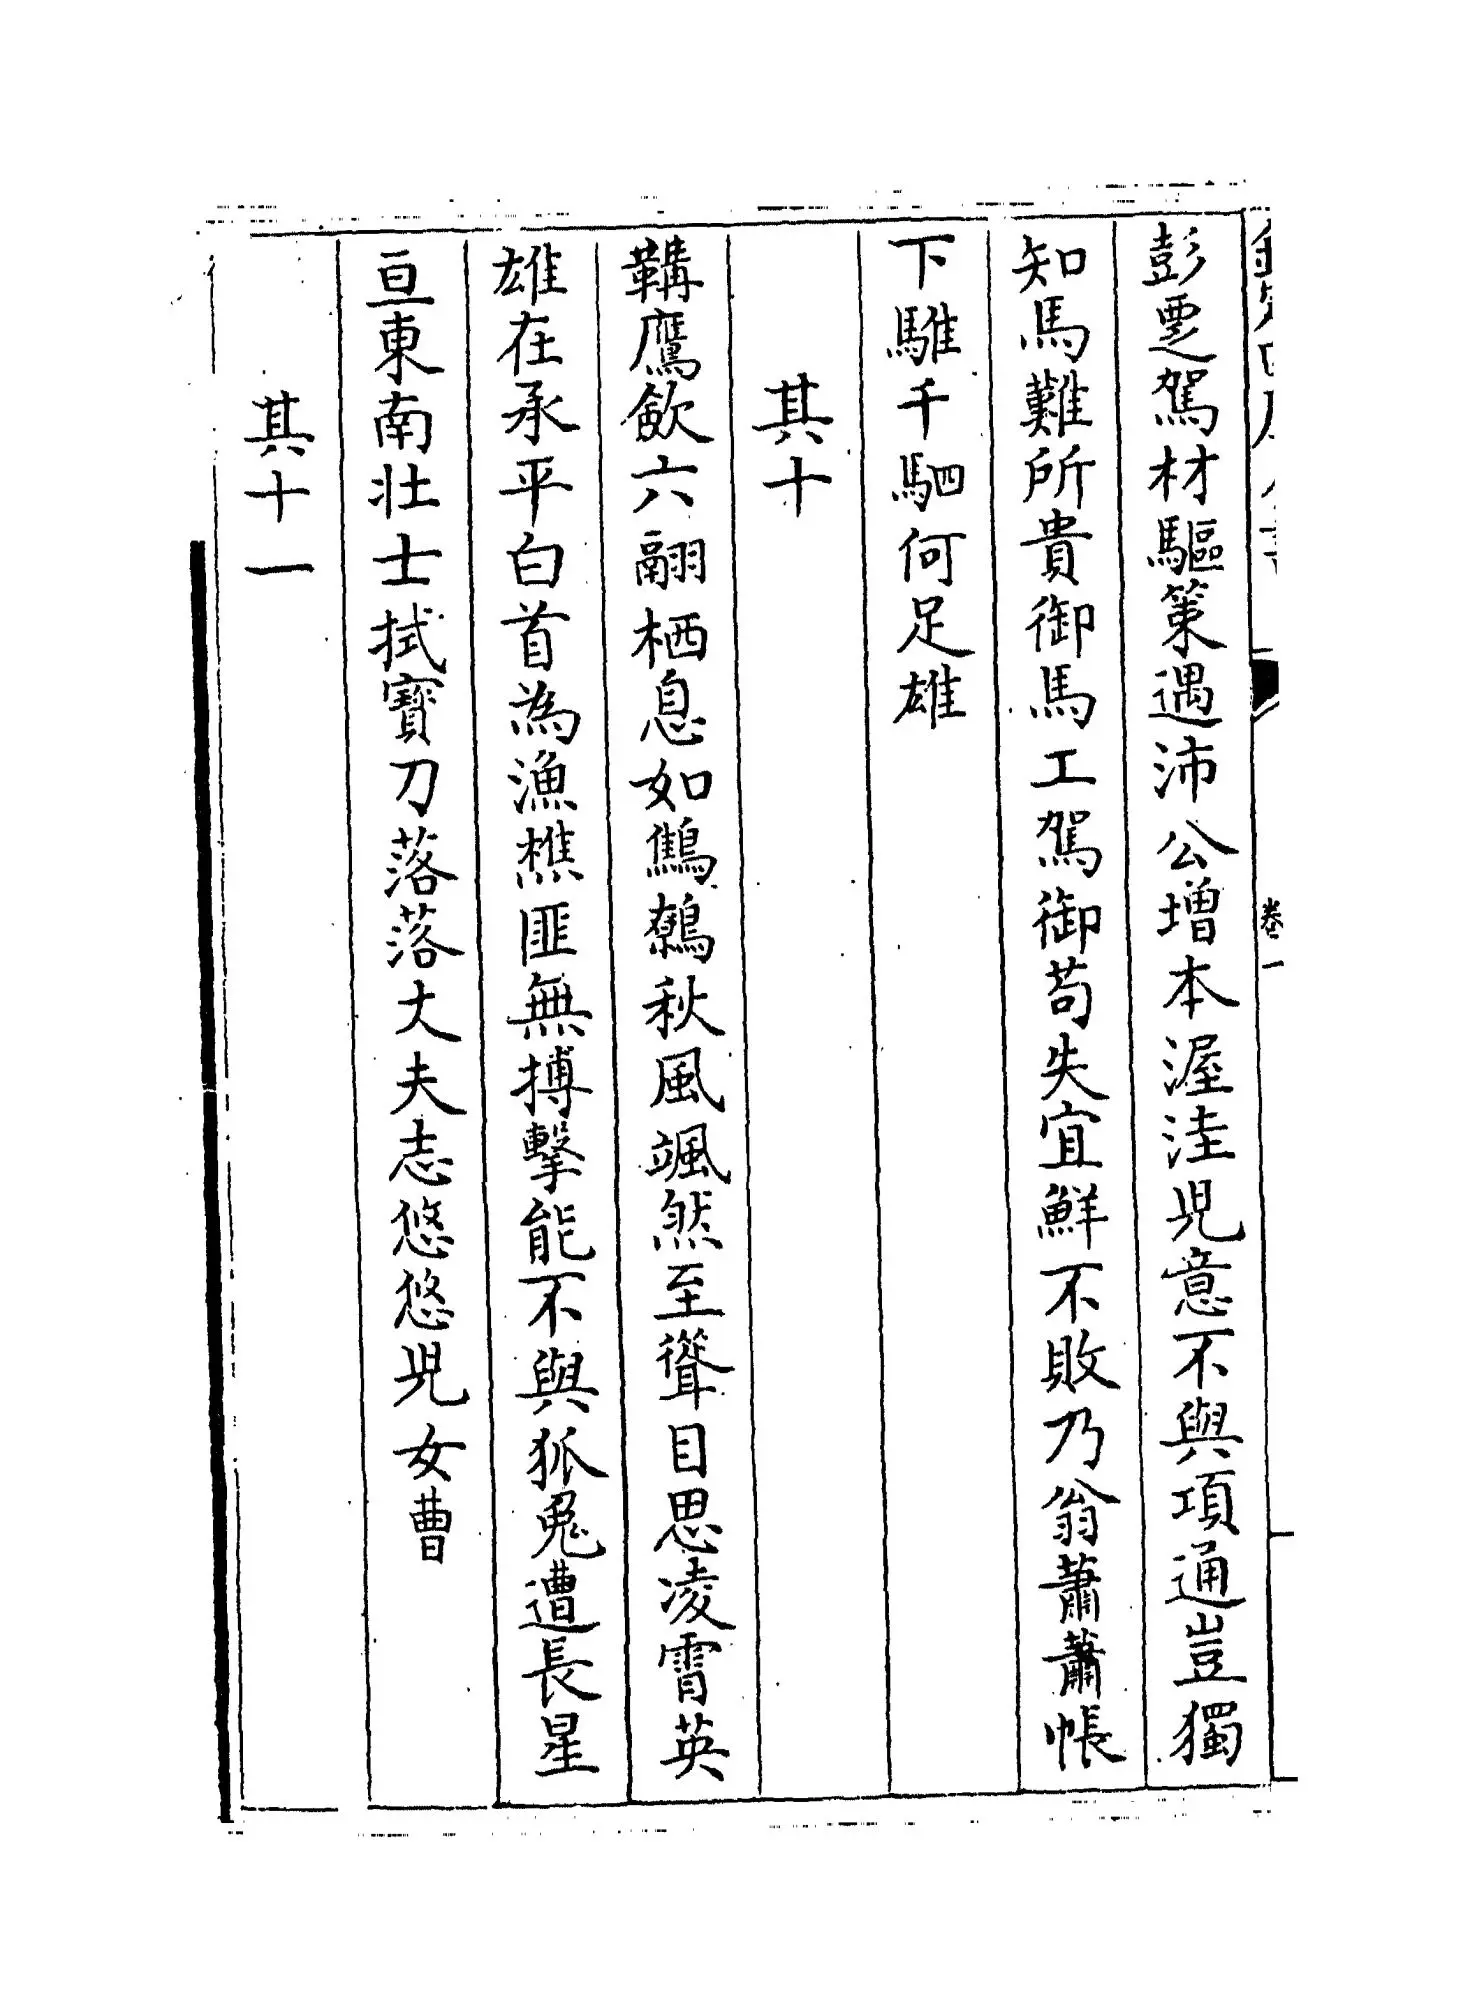 彭覂駕材驅策遇沛公增本渥洼兒意不與項通豈獨
知馬難所貴御馬工駕御苟失宜鮮不敗乃翁蕭蕭帳
下騅千駟何足雄
其十
鞲鷹歛六翮栖息如鷦鷯秋風颯然至聳目思凌霄英
雄在承平白首為漁樵匪無搏擊能不與狐兔遭長星
亘東南壯士拭寶刀落落丈夫志悠悠兒女曹
其十一
卷一